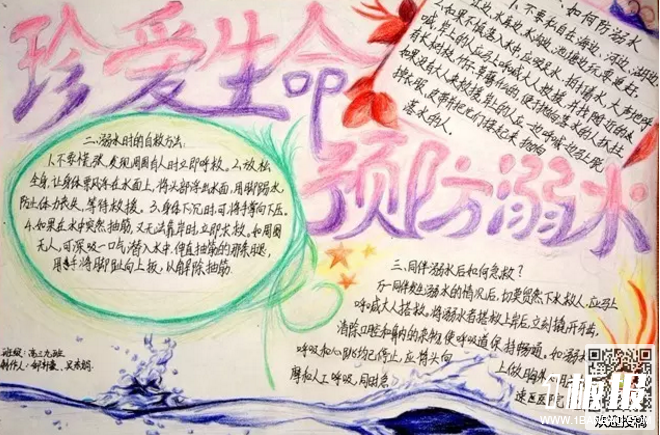 珍爱生命
预防溺水
一、如何防溺水
1.不要私自在海边、河边、湖边、
水库边、水沟边、池塘边玩耍、更好。
2.如果不慎落入水中,应踩足水,拍打踢水,大声地呼
喊,岸上的人应马上呼喊大人救援,并找随近的水
落水的人。
二、溺水时的自救方法:
1.不要慌张,发现周围有人时立即呼救。2.放松
全身,让身体漂浮在水面上,将头部浮出水面,用脚踢水,
防止体力丧失,等待救援。3.身体下沉时,可将手掌向下压。
4.如果在水中突然抽筋,又无法靠岸时,立即求救。如周围
无人,可深吸一口气潜入水中,伸直抽筋的那条腿,
用手将脚趾向上扳,以解除抽筋。
三、同伴溺水后如何急救?
万一同伴发生溺水的情况后,切莫贸然下水救人,应马上
呼喊大人搭救。将溺水者搭救上岸后,立刻撬开牙齿,
清除口腔和鼻内的杂物,使呼吸道保持畅通,如溺水
呼吸和心跳均已停止,应将
人工呼吸,同时急
送医医院
班级:高三九班
制作人:
板报
欢迎投稿